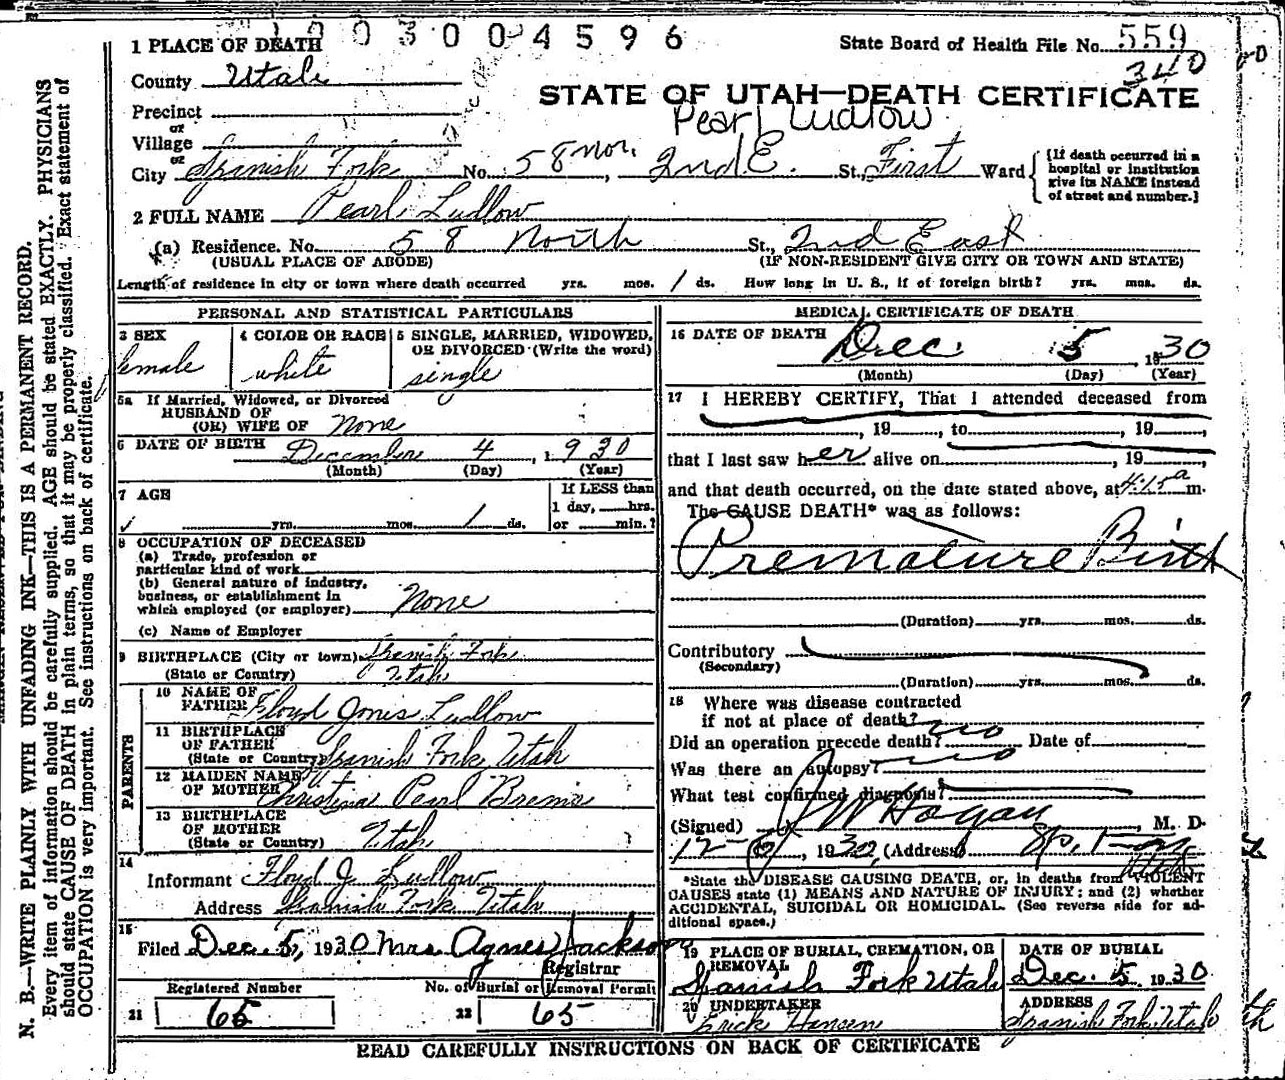 1003004596
1 PLACE OF DEATH State Board of Health File No. 559
340
County Utah
STATE OF UTAH—DEATH CERTIFICATE
Precinct
Pearl Ludlow
or
Village
or
City Spanish Fork No. 58 nor., 2nd E. St., First Ward {[If death occurred in a hospital or institution give its NAME instead of street and number.]
2 FULL NAME Pearl Ludlow
(a) Residence. No. 58 North St., 2nd East
(USUAL PLACE OF ABODE) (IF NON-RESIDENT GIVE CITY OR TOWN AND STATE)
Length of residence in city or town where death occurred yrs. mos. 1 ds. How long in U. S., if of foreign birth? yrs. mos. ds.
PERSONAL AND STATISTICAL PARTICULARS
3 SEX
female
4 COLOR OR RACE
white
5 SINGLE, MARRIED, WIDOWED,
OR DIVORCED (Write the word)
single
5a If Married, Widowed, or Divorced
HUSBAND OF
(OR) WIFE OF None
6 DATE OF BIRTH December 4, 1930
(Month) (Day) (Year)
7 AGE
yrs. mos. 1 ds.
If LESS than
1 day, hrs.
or min.?
8 OCCUPATION OF DECEASED
(a) Trade, profession or
particular kind of work
(b) General nature of industry,
business, or establishment in
which employed (or employer) None
(c) Name of Employer
9 BIRTHPLACE (City or town) Spanish Fork
(State or Country) Utah
PARENTS
10 NAME OF
FATHER Floyd Jones Ludlow
11 BIRTHPLACE
OF FATHER
(State or Country) Spanish Fork, Utah
12 MAIDEN NAME
OF MOTHER Christina Pearl
13 BIRTHPLACE
OF MOTHER
(State or Country) Utah
14
Informant Floyd J. Ludlow
Address Spanish Fork Utah
15
Filed Dec. 5, 1930 Mrs. Agnes Jackson
Registrar
Registered Number No. of Burial or Removal Permit
21 65 22 65
MEDICAL CERTIFICATE OF DEATH
16 DATE OF DEATH Dec. 5, 1930
(Month) (Day) (Year)
17 I HEREBY CERTIFY, That I attended deceased from
, 19 , to , 19 ,
that I last saw her alive on , 19
and that death occurred, on the date stated above, at 4:15 a m.
The CAUSE DEATH* was as follows:
Premature Birth
(Duration) yrs. mos. ds.
Contributory
(Secondary)
(Duration) yrs. mos. ds.
18 Where was disease contracted
if not at place of death?
Did an operation precede death? no Date of
Was there an autopsy? no
What test confirmed diagnosis?
(Signed) J W Hogan, M. D.
12- 5, 1930, (Address)
Utah
*State the DISEASE CAUSING DEATH, or, in deaths from VIOLENT
CAUSES state (1) MEANS AND NATURE OF INJURY; and (2) whether
ACCIDENTAL, SUICIDAL OR HOMICIDAL. (See reverse side for ad-
ditional space.)
19 PLACE OF BURIAL, CREMATION, OR
REMOVAL
Spanish Fork Utah
DATE OF BURIAL
Dec. 5 1930
20 UNDERTAKER
Erick Hansen
ADDRESS
Spanish Fork, Utah
READ CAREFULLY INSTRUCTIONS ON BACK OF CERTIFICATE
N. B.—WRITE PLAINLY WITH UNFADING INK—THIS IS A PERMANENT RECORD.
Every item of information should be carefully supplied. AGE should be stated EXACTLY. PHYSICIANS
should state CAUSE OF DEATH in plain terms, so that it may be properly classified. Exact statement of
OCCUPATION is very important. See instructions on back of certificate.